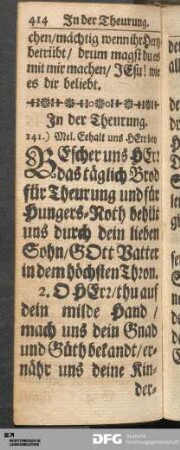 414 In der Theurung.
chen/mächtig wenn ihr Hertz
betrübt / drum magst dues
mit mir machen / JEsu! wie
es dir beliebt.
In der Theurung.
141.) Mel. Erhalt uns HErr bey
BEscher uns HErr
das täglich Brod
für Theurung und für
Hungers-Noth behüt
uns durch dein lieben
Sohn/GOtt Vatter
in dem höchsten Thron.
2. O HErr/thu auf
dein milde Hand /
mach uns dein Gnad
und Güth bekandt/er-
nähr uns deine Kin-
der-
DFG Deutsche
Forschungsgemeinschaft